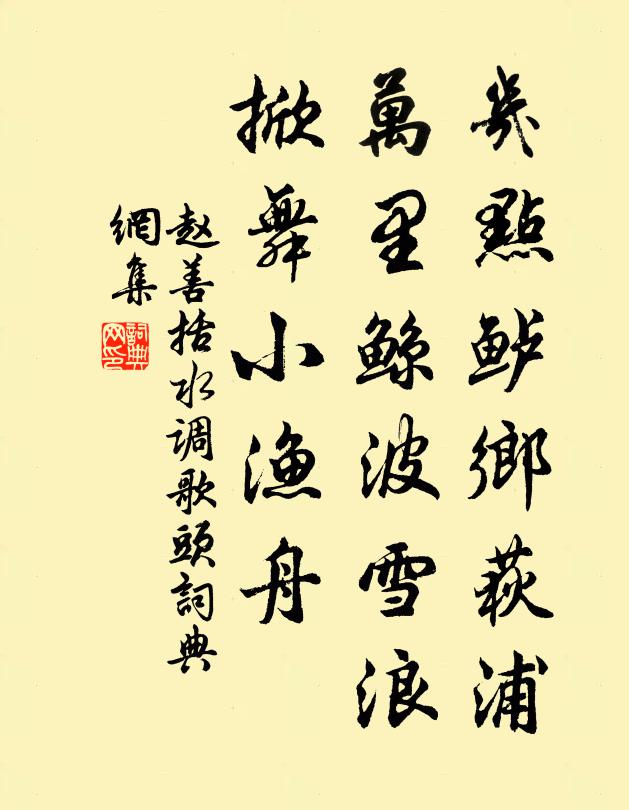 幾點鲈鄉荻浦
萬里鲸波雪浪
掀舞小漁舟
赵善括水调歌頭詞典
網集
詞典網印